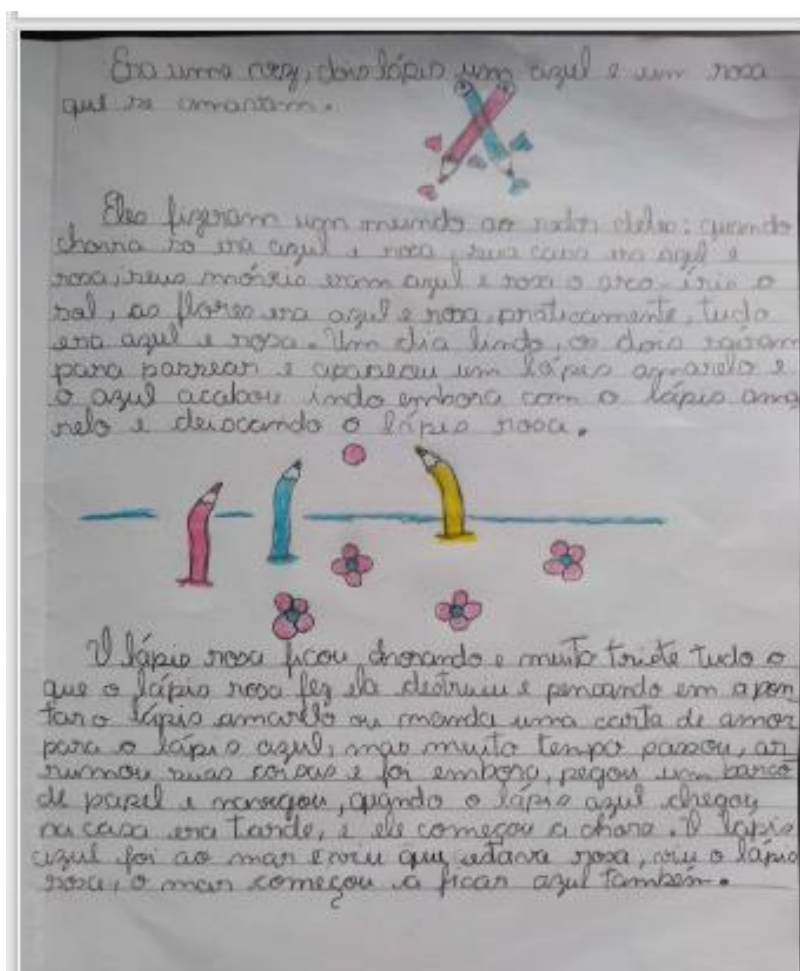 Era uma vez, dois lápis um azul e um rosa
que se amavam.
Eles fizeram um mundo ao redor deles: quando
chovia só era azul e rosa, sua casa era azul e
rosa, seus móveis eram azul e rosa o arco-íris o
sol, as flores era azul e rosa, praticamente, tudo
era azul e rosa. Um dia lindo, os dois saíram
para passear e apareceu um lápis amarelo e
o azul acabou indo embora com o lápis ama
relo e deixando o lápis rosa.
O lápis rosa ficou chorando e muito triste tudo o
que o lápis rosa fez ela destruiu e pensando em apon
tar o lápis amarelo ou manda uma carta de amor
para o lápis azul, mas muito tempo passou, ar
rumou suas coisas e foi embora, pegou um barco
de papel e navegou, quando o lápis azul chegou
na casa era tarde, e ele começou a chora. O lápis
azul foi ao mar e viu que estava rosa, viu o lápis
rosa, o mar começou a ficar azul também.